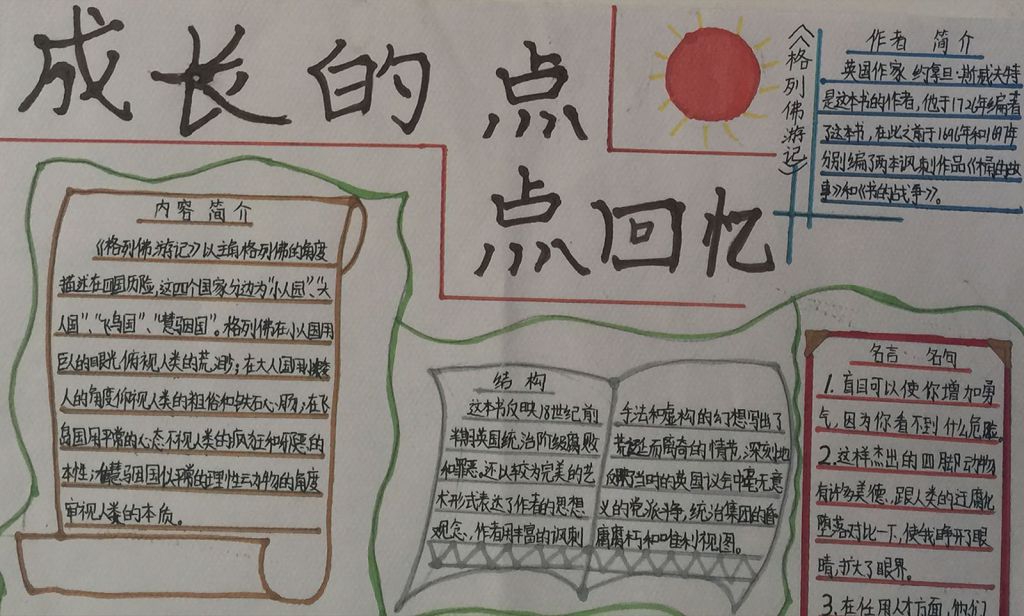 成长的点
点回忆
《格列佛游记》
作者 简介
英国作家 约拿旦·斯威夫特
是这本书的作者,他于1726年编著
了这本书,在此之前于1696年和1697年
分别编了两本讽刺作品《桶的故
事》和《书的战争》。
内容简介
《格列佛游记》以主角格列佛的角度
描述在四国历险,这四个国家分边为“小人国”、“大
人国”、“飞岛国”、“慧骃国”。格列佛在小人国用
巨人的眼光俯视人类的荒诞;在大人国用
人的角度仰视人类的粗俗和铁石心肠;在飞
岛国用平常的心态不视人类的疯狂和邪恶的
本性;在慧骃国以平常的理性动物的角度
审视人类的本质。
结构
这本书反映18世纪前
半期英国统治阶级腐败
和罪恶。还以较为完美的艺
术形式表达了作者的思想
观念,作者用丰富的讽刺
手法和虚构的幻想写出了
荒诞而离奇的情节,深刻地
反映了当时的英国议会中毫无意
义的党派斗争,统治集团的昏
庸腐朽和唯利视图。
名言 名句
1.盲目可以使你增加勇
气,因为你看不到什么危险。
2.这样杰出的四脚动物
有许多美德,跟人类的迂腐化
堕落对比一下,使我睁开了眼
睛,扩大了眼界。
3.在任用人才方面,他们